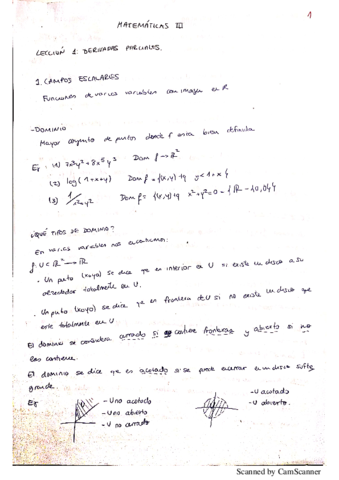 1
MATEMÁTICAS III
LECCIÓN 1: DERIVADAS PARCIALES.
1. CAMPOS ESCALARES
Funciones de varias variables con imagen en R
-DOMINIO
Mayor conjunto de puntos donde f está bien definida
Ej: (1) 7x³y² + 8x⁵y³ Dom f → R²
(2) log(1+x+y) Dom f = {(x,y) tq
(3) 1/x²+y² Dom f = {(x,y) tq x²+y²=0 = {R - {0,0}}
¿QUÉ TIPOS DE DOMINIO?
En varias variables nos encontramos:
f: U ⊂ R² → R
· Un punto (x₀,y₀) se dice que es interior en U si existe un disco a su
alrededor totalmente en U.
· Un punto (x₀,y₀) se dice que es frontera de U si no existe un disco que
esté totalmente en U.
El dominio se considera cerrado si contiene fronteras y abierto si no
las contiene.
El dominio se dice que es acotado si se puede encerrar en un disco sufte
grande.
Ej:
- U no acotado
- U no abierto
- U no cerrado
- U acotado
- U abierto.
Scanned by CamScanner